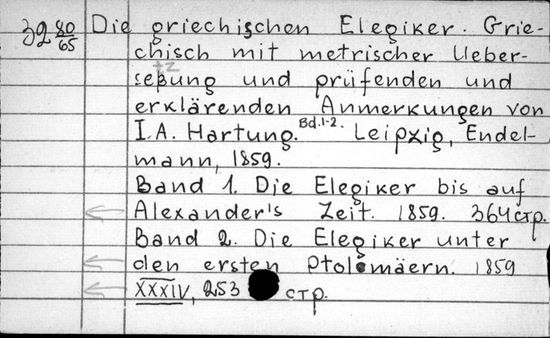 З2 80/65 Die griechischen Elegiker. Grie-
chisch mit metrischer Ueber-
tz
seßung und prüfenden und
erklärenden Anmerkungen von
I.A. Hartung. Bd.1-2. Leipzig, Endel-
mann, 1859.
Band 1. Die Elegiker bis auf
Alexander's Zeit. 1859. 364 стр.
Band 2. Die Elegiker unter
den ersten Ptolomäern. 1859
XXXIV, 253 стр.